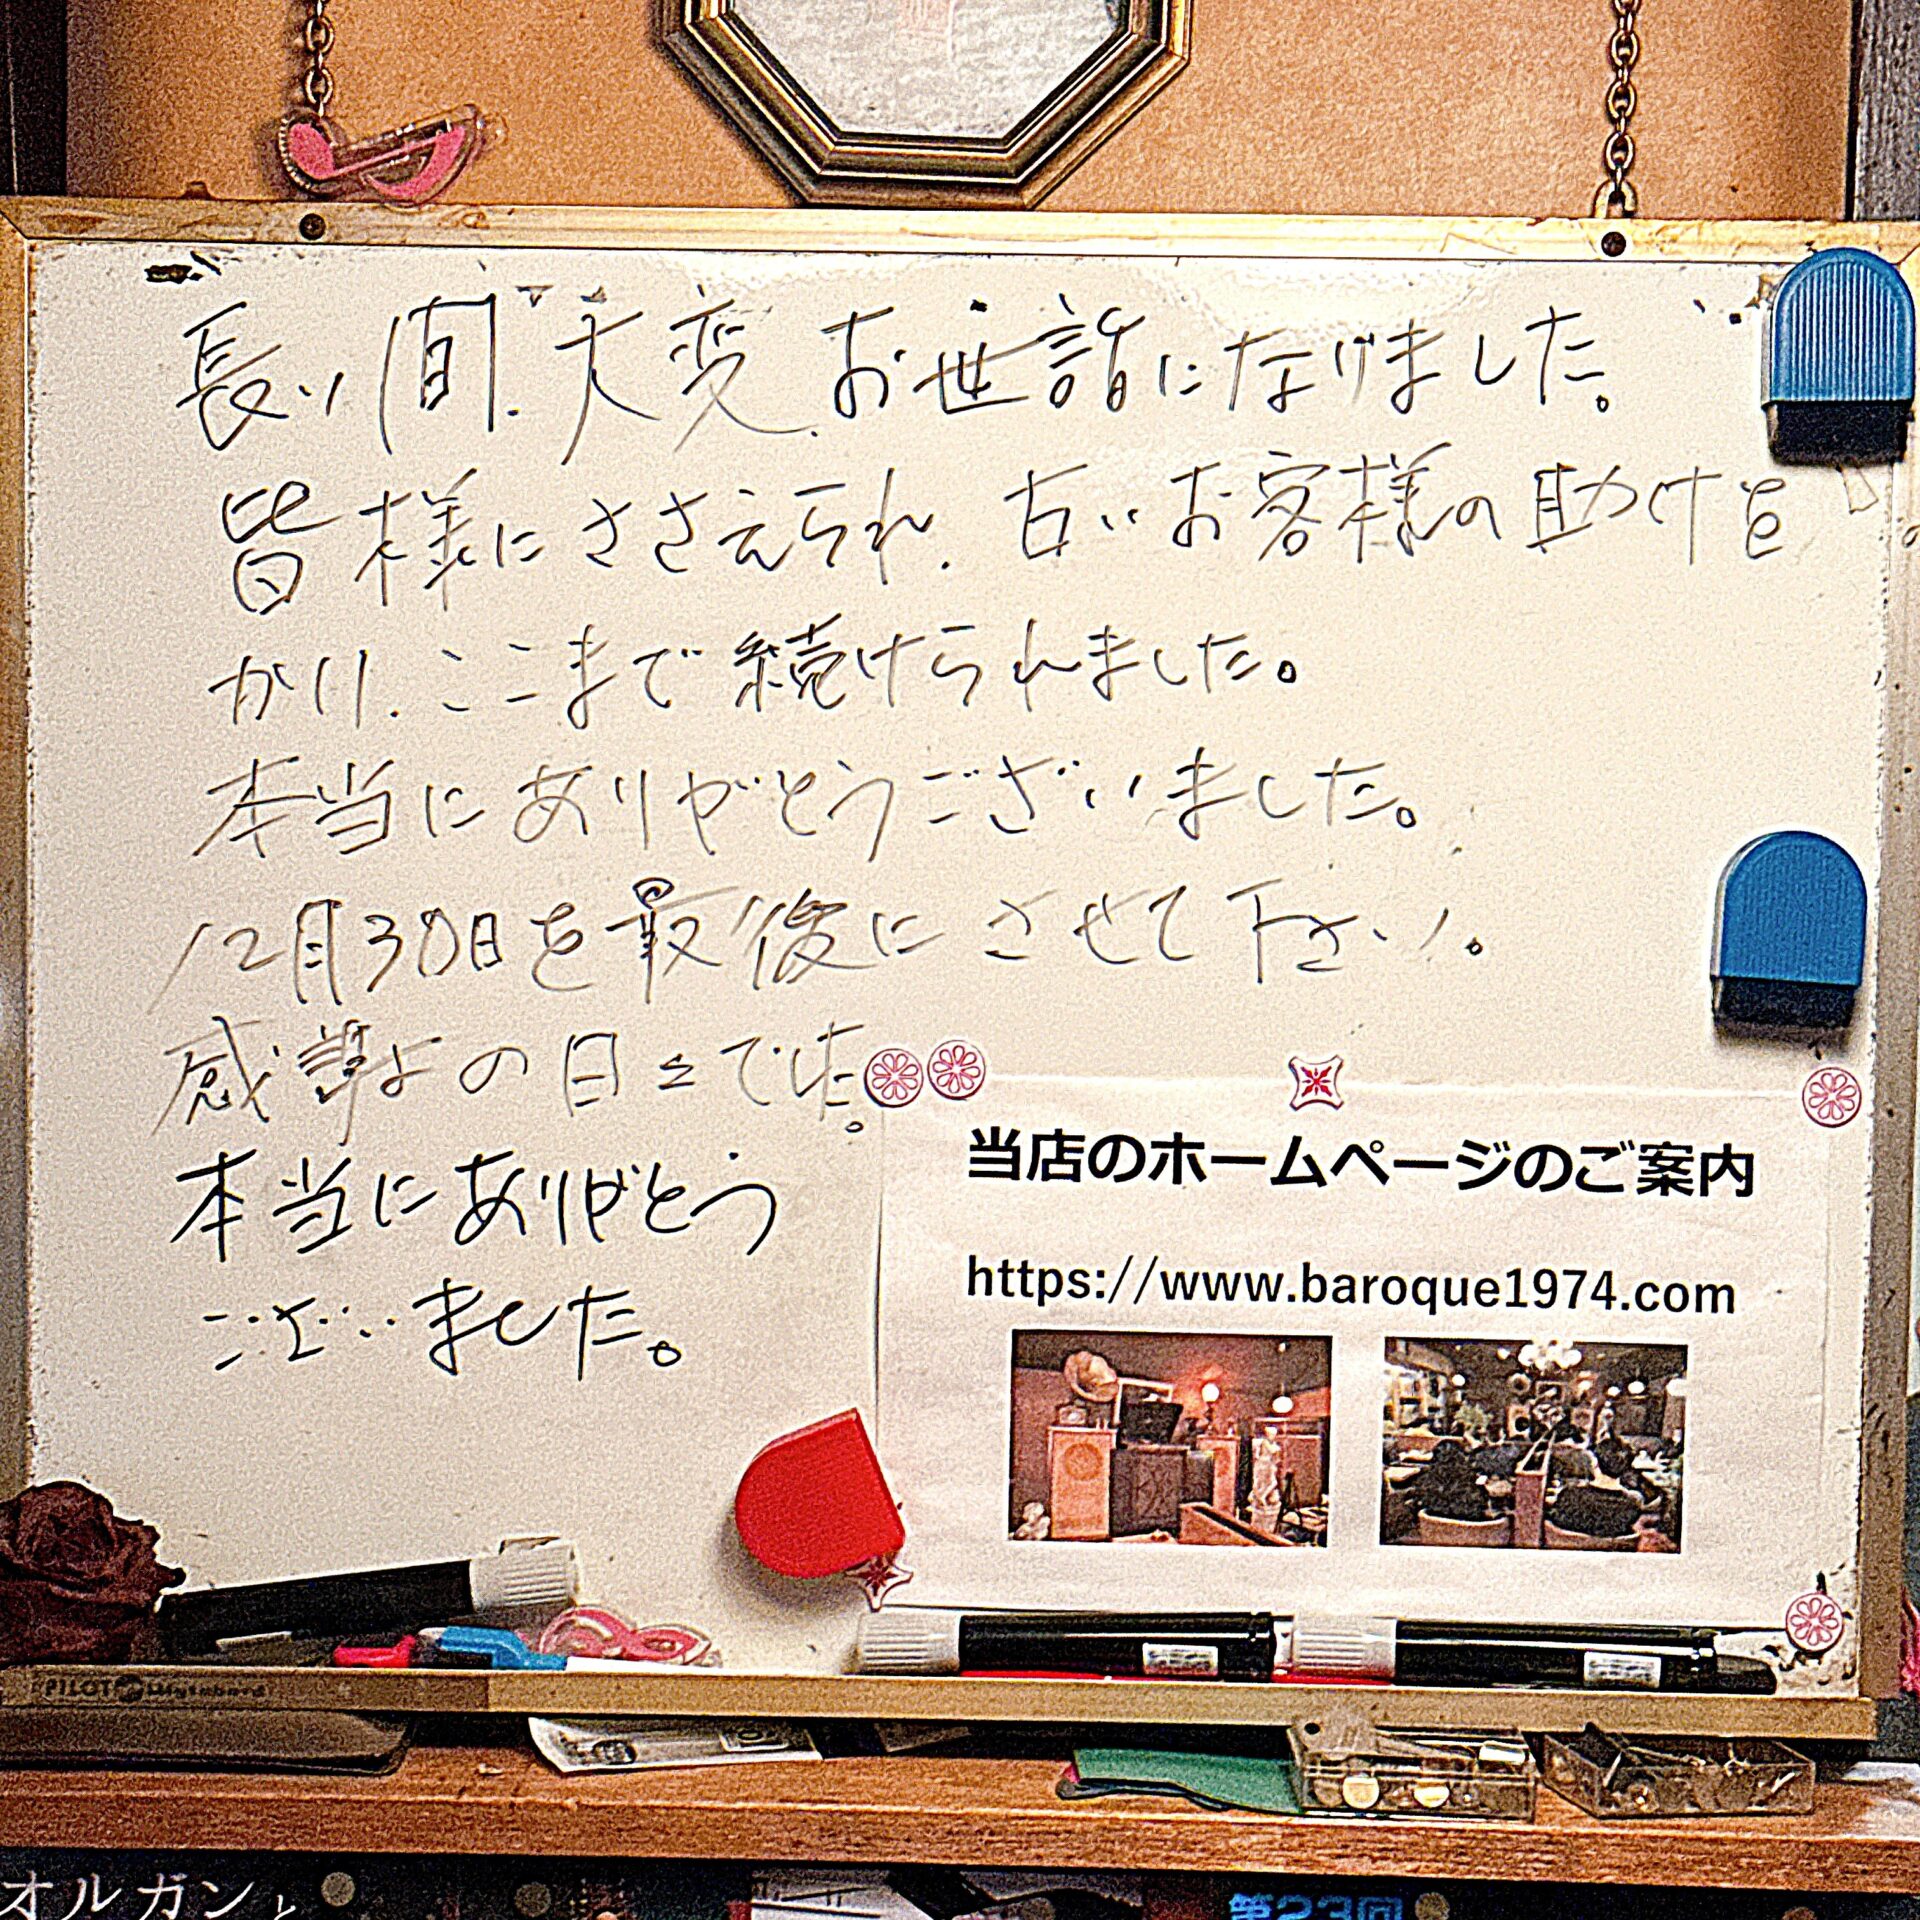 長い間、大変、お世話になりました。
皆様にささえられ、古いお客様の助けを
かり、ここまで続けられました。
本当にありがとうございました。
12月30日を最後にさせて下さい。
感謝の日々でした。
本当にありがとう
ございました。
当店のホームページのご案内
https://www.baroque1974.com
PILOT
オルガンと
第23回